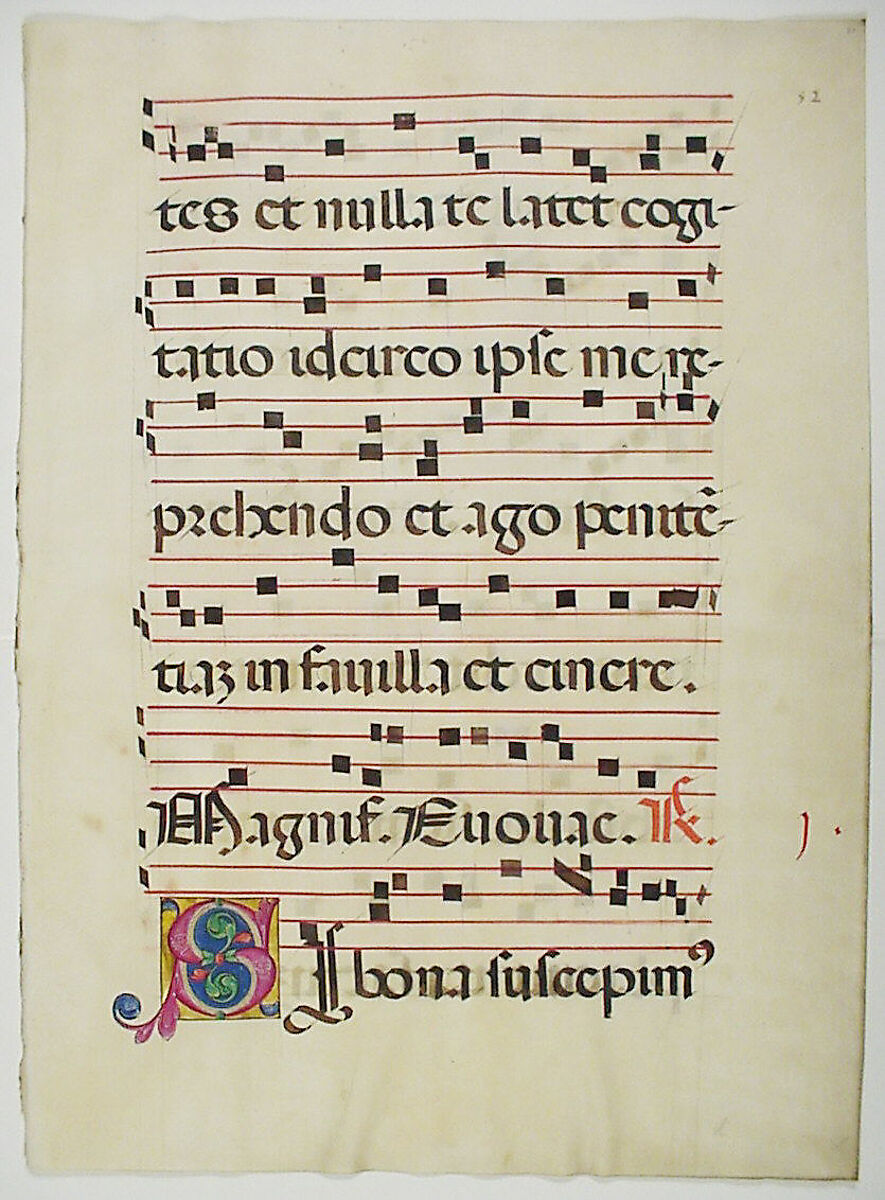 52
tes et nulla te latet cogi-
tatio idcirco ipse me re-
prehendo et ago penitē-
tiaʒ in favilla et cinere.
Magnif. Euouae. R. j.
SI bona suscepimꝰ